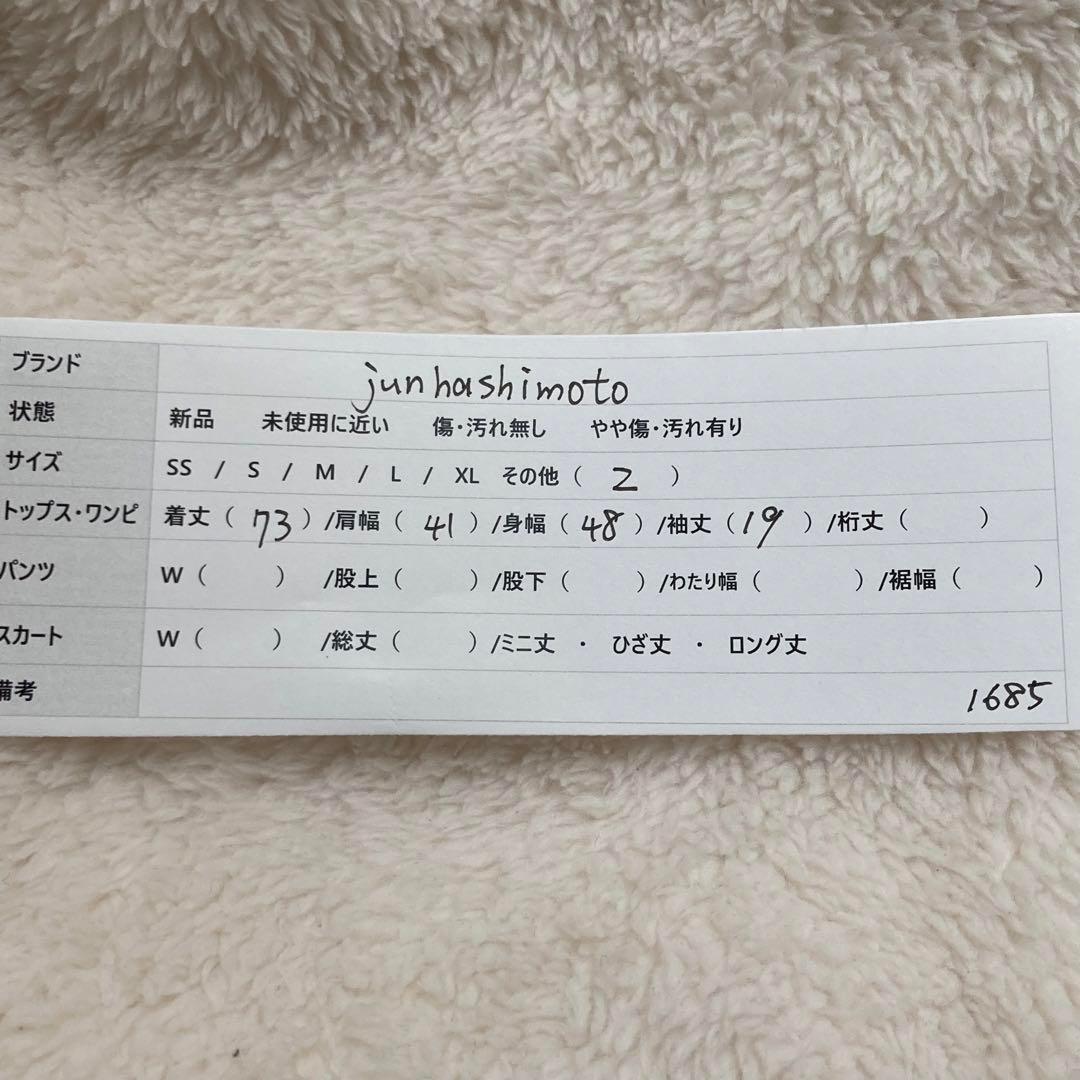 ブランド junhashimoto
状態 新品 未使用に近い 傷・汚れ無し やや傷・汚れ有り
サイズ SS / S / M / L / XL その他（ 2 ）
トップス・ワンピ 着丈（ 73 ）/肩幅（ 41 ）/身幅（ 48 ）/袖丈（ 19 ）/裄丈（ ）
パンツ W（ ） /股上（ ）/股下（ ）/わたり幅（ ）/裾幅（ ）
スカート W（ ） /総丈（ ）/ミニ丈 ・ ひざ丈 ・ ロング丈
備考 1685